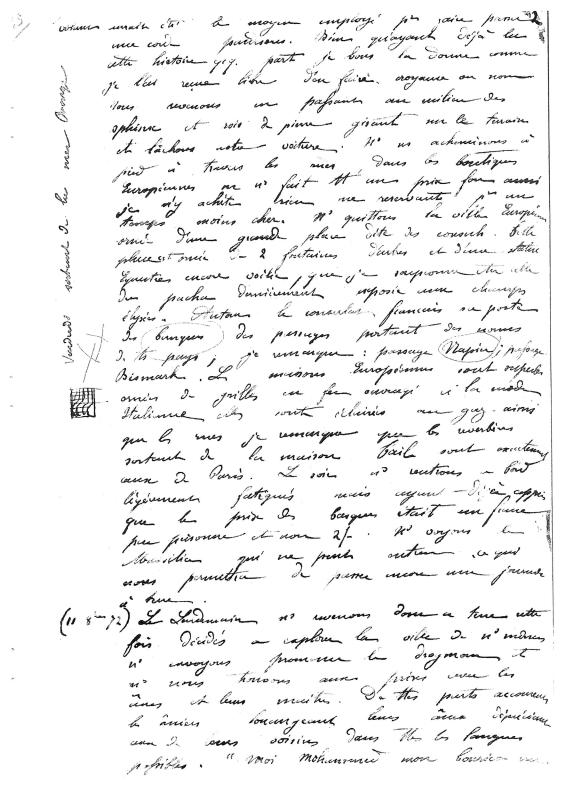 aurait été le moyen employé pr faire passer 2
une corde pardessus. Bien qu'ayant déjà lu
cette histoire qq. part je vous la donne comme
je l'ai reçue libre d'en faire croyance ou non
Nous revenons en passant au milieu des
sphinx et rois de pierre gisant sur le terrain
et lâchons notre voiture. Ns ns acheminons à
pied à travers les rues dans les boutiques
Européennes on ns fait tt un prix fou aussi
je n'y achète rien me réservant pr un
moins cher. Ns quittons la ville Européenne
ornée d'une grande place dite des consuls. Cette
place est ornée de 2 fontaines d'arbres et d'une statue
équestre encore voilée, que je soupçonne être celle
du pacha dernièrement exposée aux champs
élysées. Autour le consulat français sa poste
des banques des passages portant des noms
de ts pays, je remarque : passage Napier, passage
Bismark. Les maisons Européennes sont
ornées de grilles en fer ouvragé à la mode
Italienne elles sont éclairées au gaz ainsi
que les rues je remarque que les réverbères
sortant de la maison sont exactement
ceux de Paris. Le soir ns rentrons à bord
légèrement fatigués mais ayant déjà appris
que le prix des barques était un franc
par personne et non 2/-. Ns voyons le
Massilia qui ne peut entrer ce qui
nous permettra de passer encore une journée
à terre.
(11 8bre 72) Le Lendemain ns revenons donc à terre cette
fois décidés à explorer la ville de ns mêmes
ns envoyons promener le drogman et
ns nous trouvons aux prises avec les
ânes et leurs maîtres. De ttes parts accourent
les âniers leurs ânes dépréciant
ceux de leurs voisins dans ttes les langues
possibles. "Moi Mohammed mon bourico
Vendredi de la mer Rouge